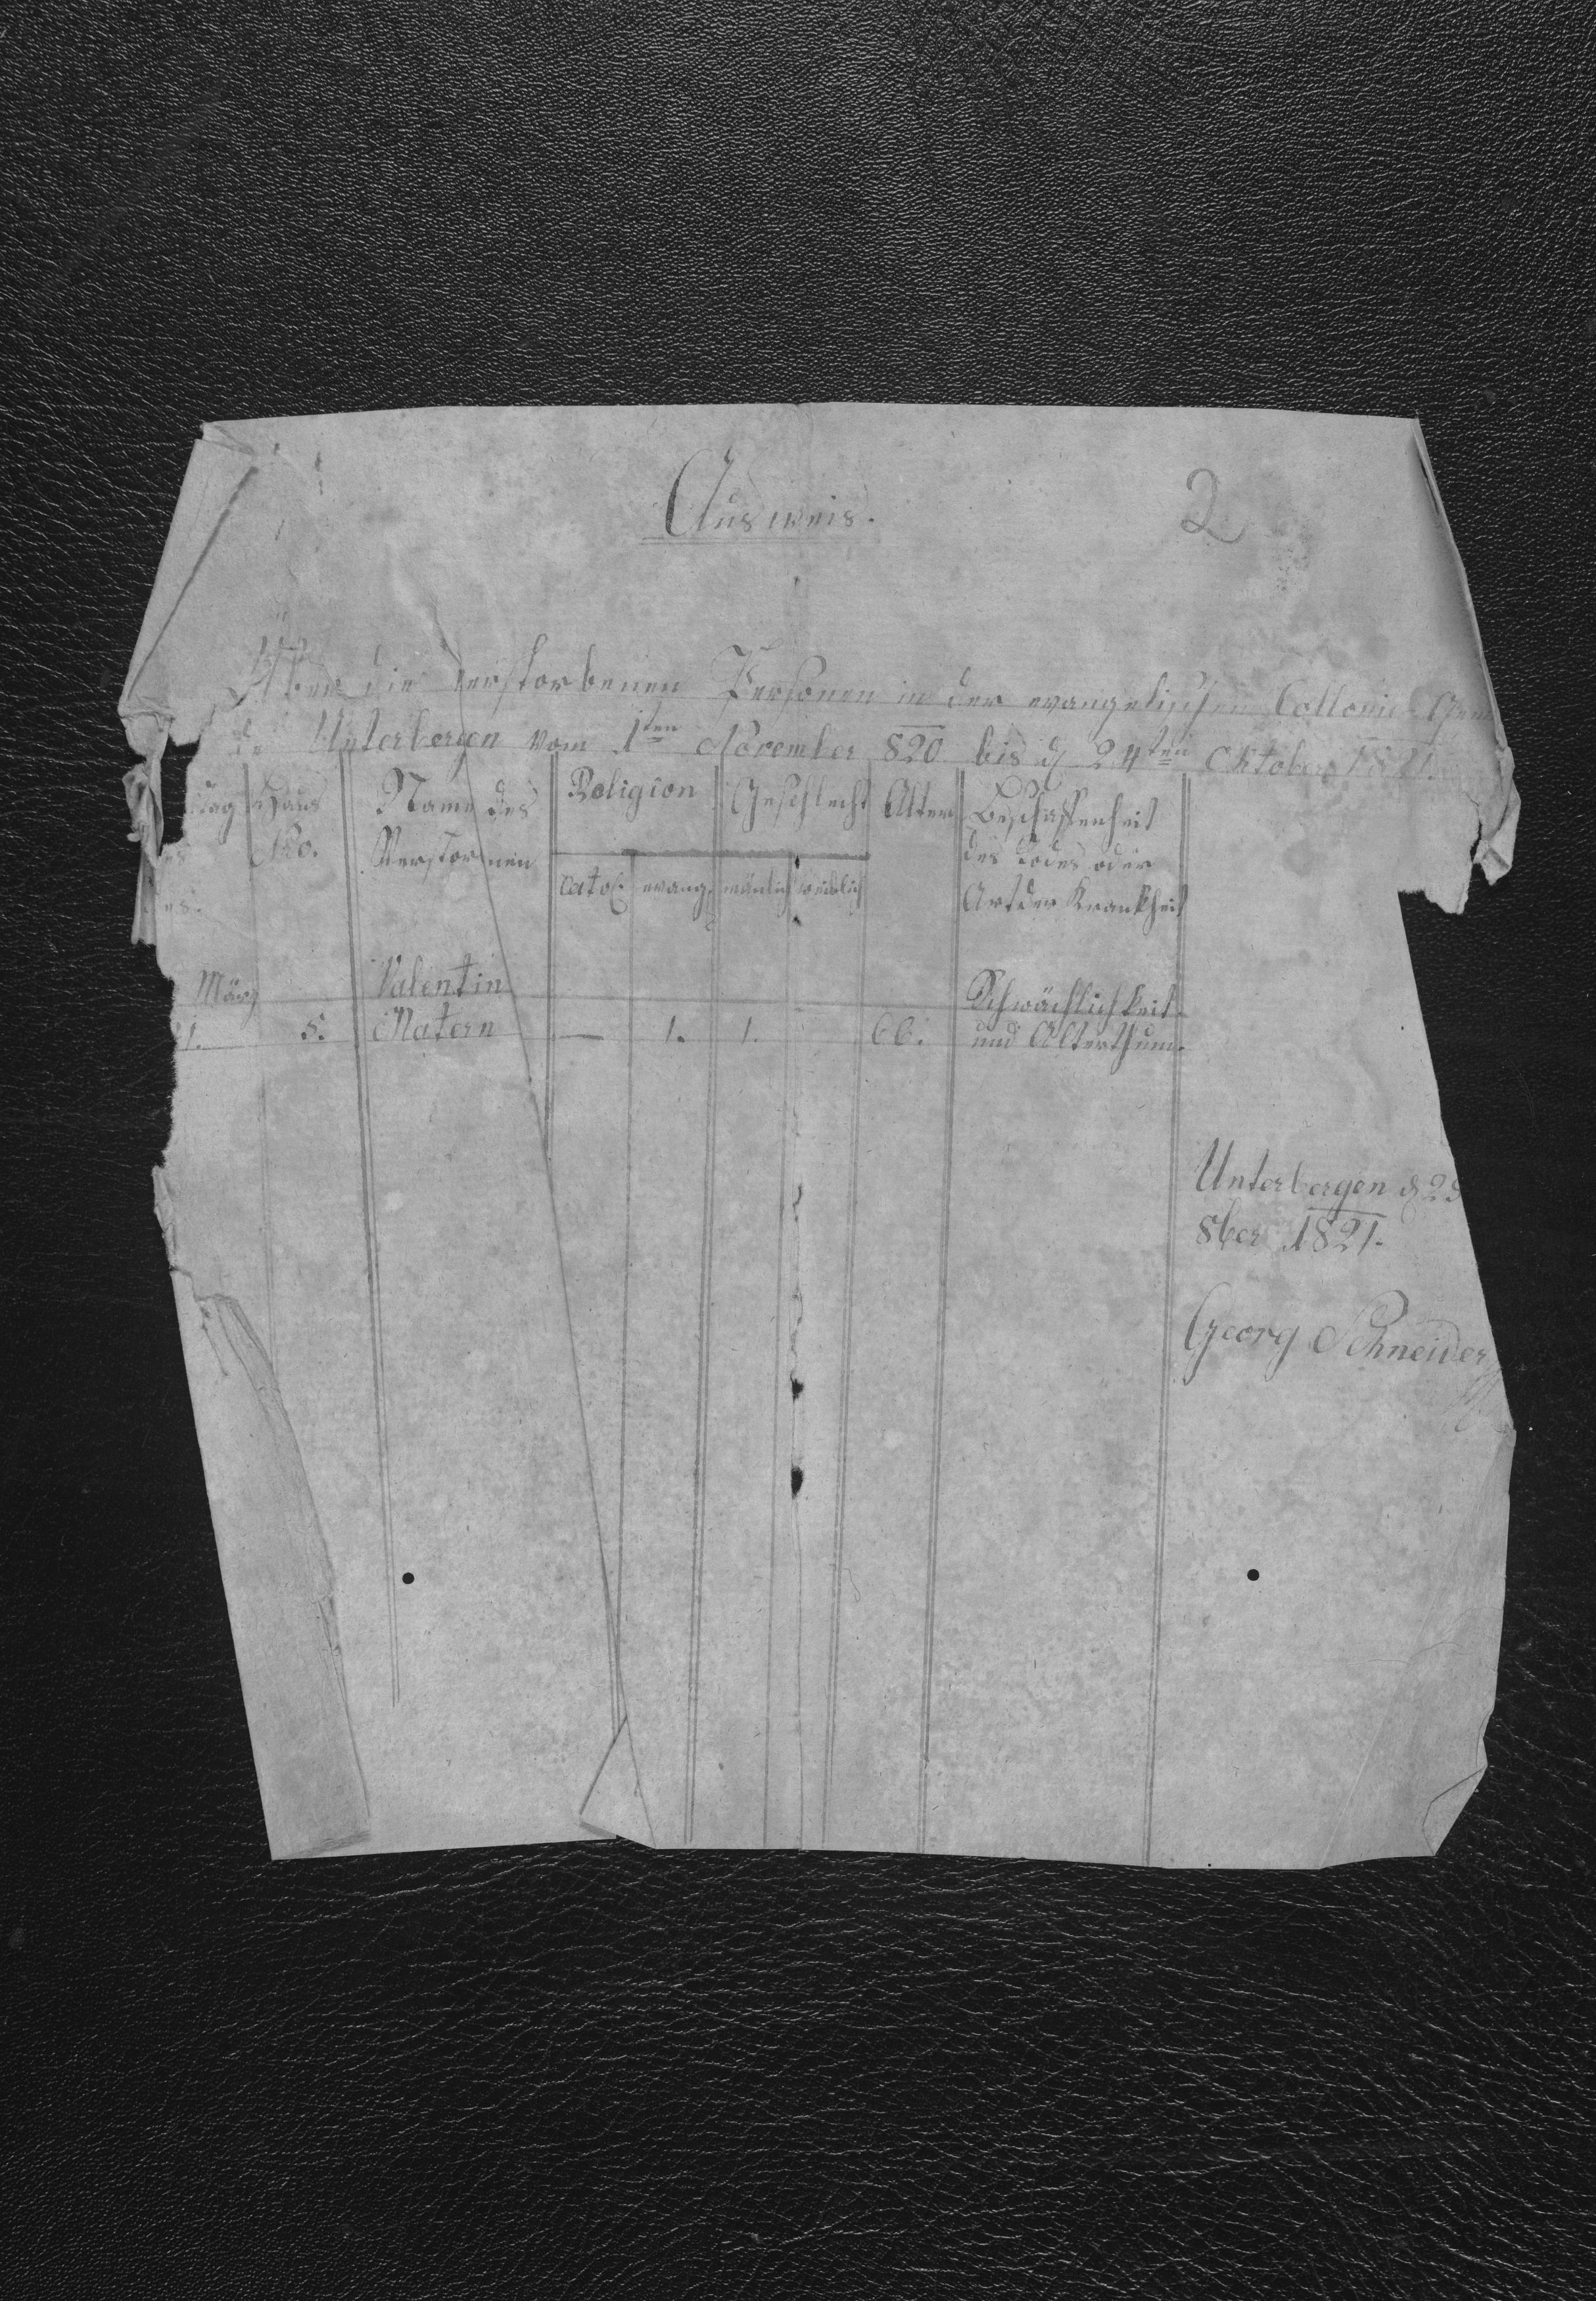 Ausweis.
2
Über die verstorbenen Personen in der evangelischen Collonie Gem
de Unterbergen vom 1ten November 820 bis d 24ten Oktober 1821.
Tag
es
es.
Haus
Nro.
Name des
Verstorbnen
Religion
catol.
evang.
Geschlecht
mänlich
weiblich
Alter
Beschaffenheit
des Todes oder
Art der Krankheit
März
21.
5.
Valentin
Matern
—
1.
1.
66.
Schwächlichkeit
und Alterthum.
Unterbergen d 29
8ber 1821.
Georg Schneider